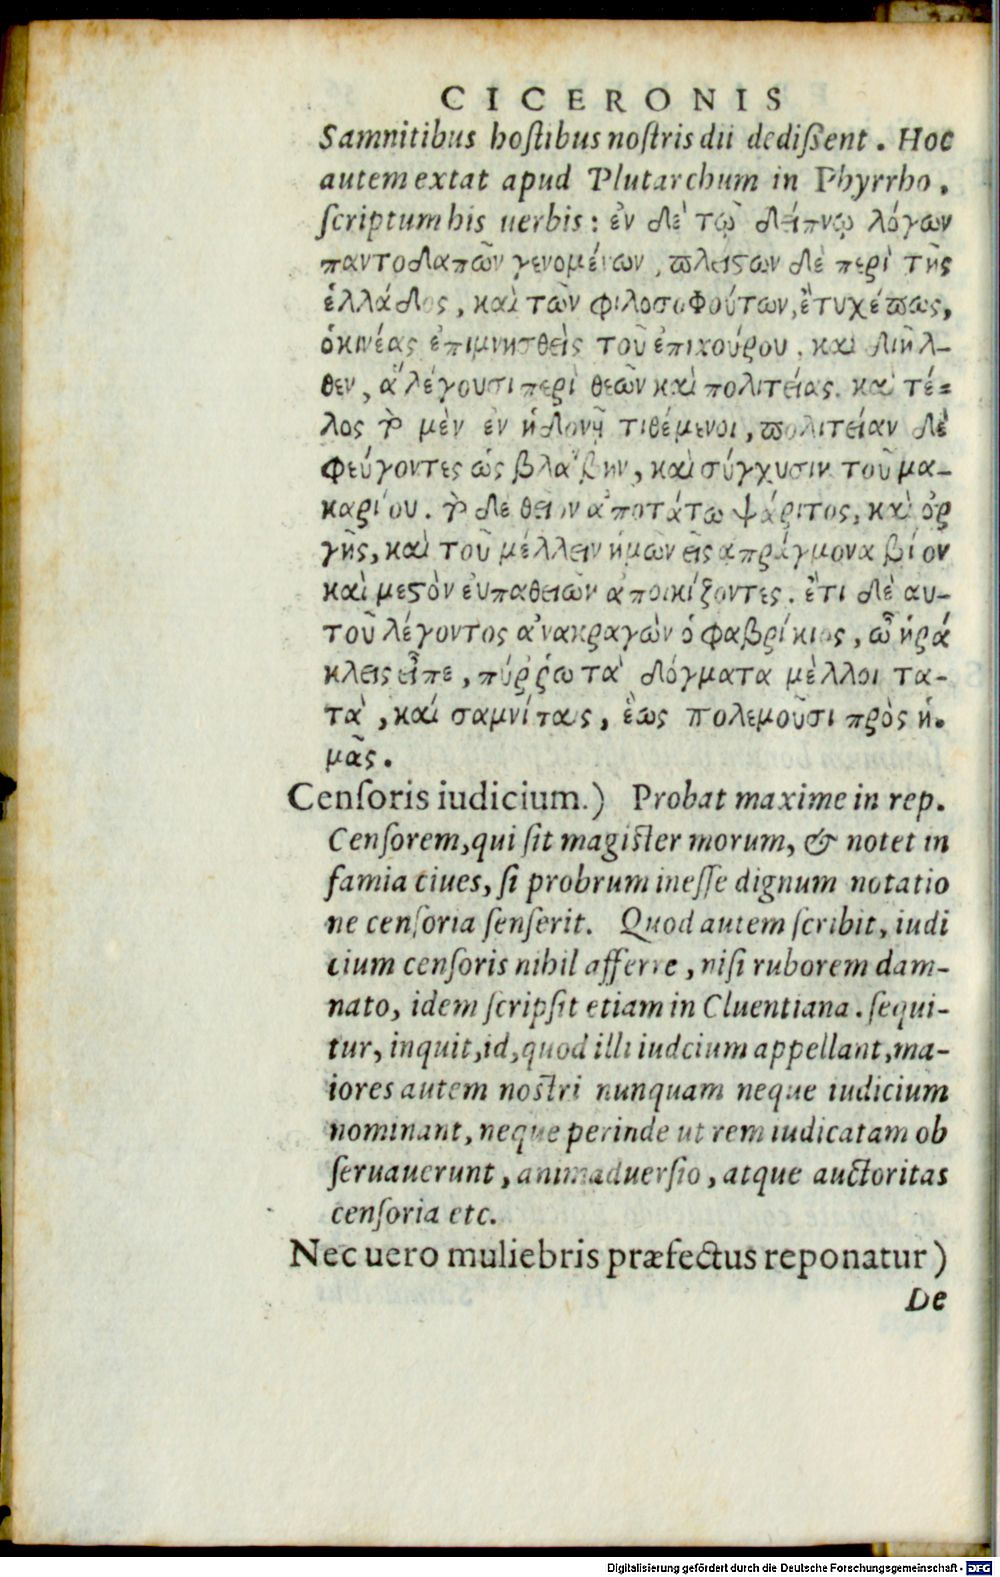 CICERONIS
Samnitibus hoſtibus noſtris dii dedißent. Hoc
autem extat apud Plutarchum in Phyrrho.
ſcriptum his uerbis: ἐν δὲ τῷ δείπνῳ λόγων
παντοδαπῶν γενομένων, πλείστων δὲ περὶ τῆς
ἑλλάδος, καὶ τῶν φιλοσοφούτων, ἔτυχέ πως,
ὁκινέας ἐπιμνησθεὶς τοῦ ἐπιχούρου. καὶ διῆλ-
θεν, ἃ λέγουσι περὶ θεῶν καὶ πολιτείας. καὶ τέ=
λος μὲν ἐν ἡδονῇ τιθέμενοι, πολιτείαν δὲ
φεύγοντες ὡς βλάβην, καὶ σύγχυσιν τοῦ μα-
καρίου. δὲ θεῖον ἀποτάτω ψάριτος, καὶ ὀρ
γῆς, καὶ τοῦ μέλλειν ἡμῶν εἰς απράγμονα βίον
καὶ μεστὸν ἐυπαθειῶν ἀποικίζοντες. ἔτι δὲ αυ-
τοῦ λέγοντος ἀνακραγὼν ὁ φαβρίκιος, ὦ ἡρά
κλεις εἶπε, πύῤῥω τὰ δόγματα μὲλλοι τα-
τὰ, καί σαμνίταις, ἕως πολεμοῦσι πρὸς ἡ-
μᾶς.
Cenſoris iudicium.) Probat maxime in rep.
Cenſorem, qui ſit magiſter morum, & notet in
famia ciues, ſi probrum ineſſe dignum notatio
ne cenſoria ſenſerit. Quod autem ſcribit, iudi
cium cenſoris nihil afferre, niſi ruborem dam-
nato, idem ſcripſit etiam in Cluentiana. ſequi-
tur, inquit, id, quod illi iudcium appellant, ma-
iores autem noſtri nunquam neque iudicium
nominant, neque perinde ut rem iudicatam ob
ſeruauerunt, animaduerſio, atque auctoritas
cenſoria etc.
Nec uero muliebris præfectus reponatur)
De
Digitalisierung gefördert durch die Deutsche Forschungsgemeinschaft - DFG